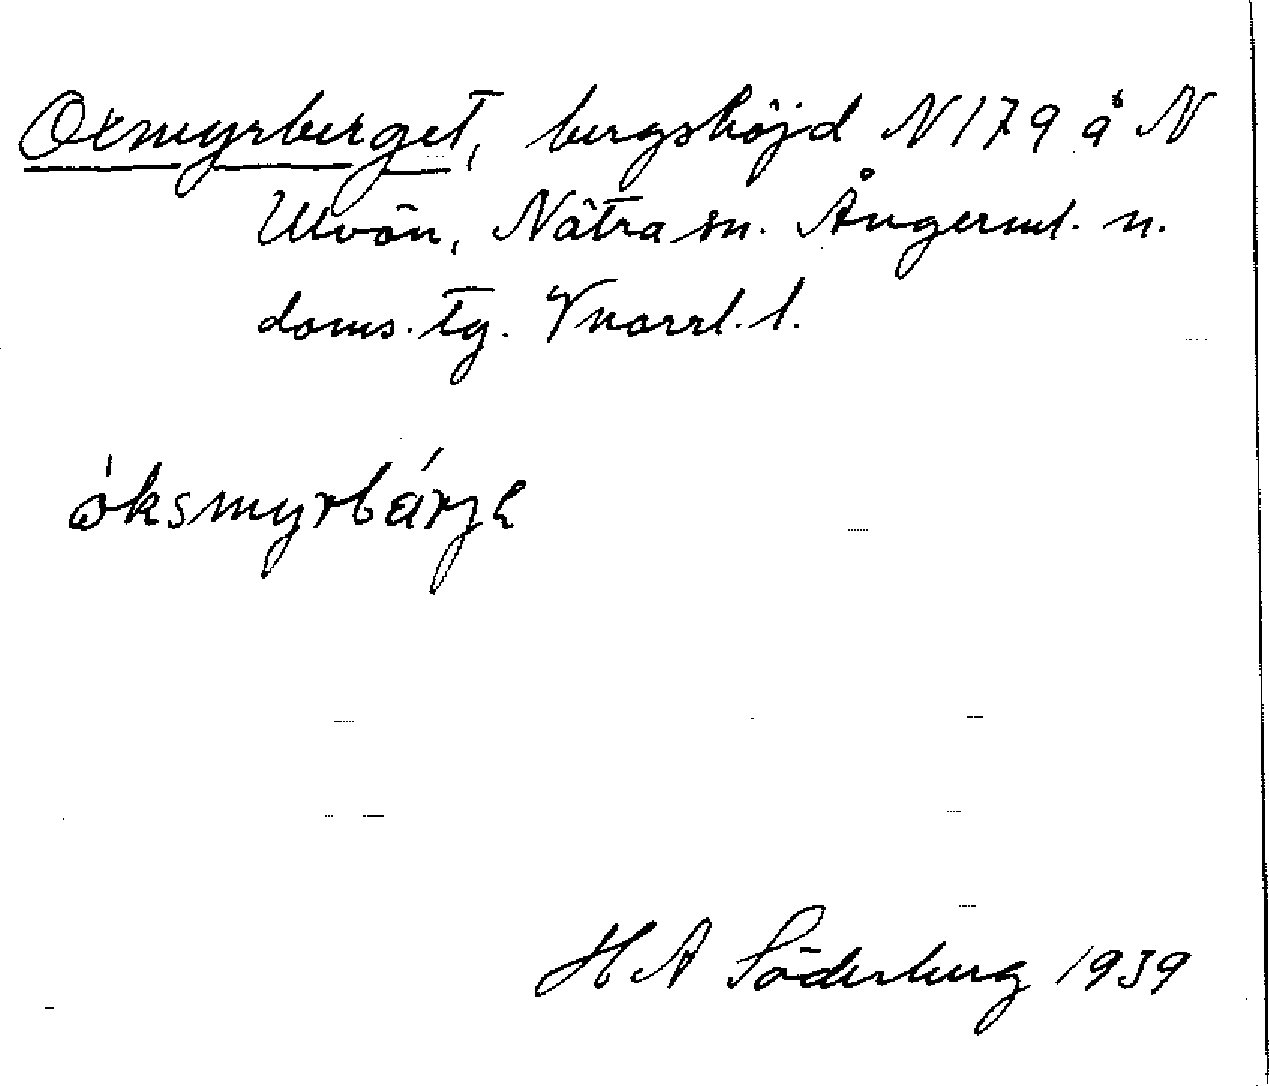 Oxmyrberget, bergshöjd N179 å N
Ulvön, Nätra sn. Ångerml. n.
doms. tg. Vnorrl. l.
óksmyrbárjɛ
H A Söderberg 1939